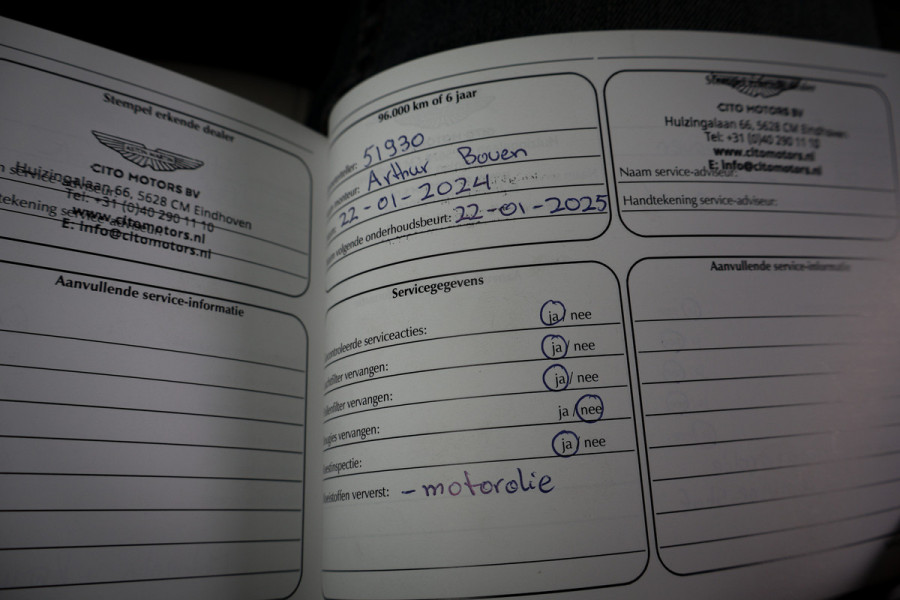 Stempel erkende dealer
CITO MOTORS BV
Huizingalaan 66, 5628 CM Eindhoven
service adviseur:
Tel: +31 (0)40 290 11 10
www.citomotors.nl
E: Info@citomotors.nl
Aanvullende service-informatie
96.000 km of 6 jaar
51930
Arthur Boven
22-01-2024
volgende onderhoudsbeurt: 22-01-2025
Servicegegevens
serviceacties: ja / nee
vervangen: ja / nee
vervangen: ja / nee
vervangen: ja / nee
ja / nee
ververst: - motorolie
Stempel erkende dealer
CITO MOTORS BV
Huizingalaan 66, 5628 CM Eindhoven
Tel: +31 (0)40 290 11 10
www.citomotors.nl
E: Info@citomotors.nl
Naam service-adviseur:
Handtekening service-adviseur:
Aanvullende service-informatie